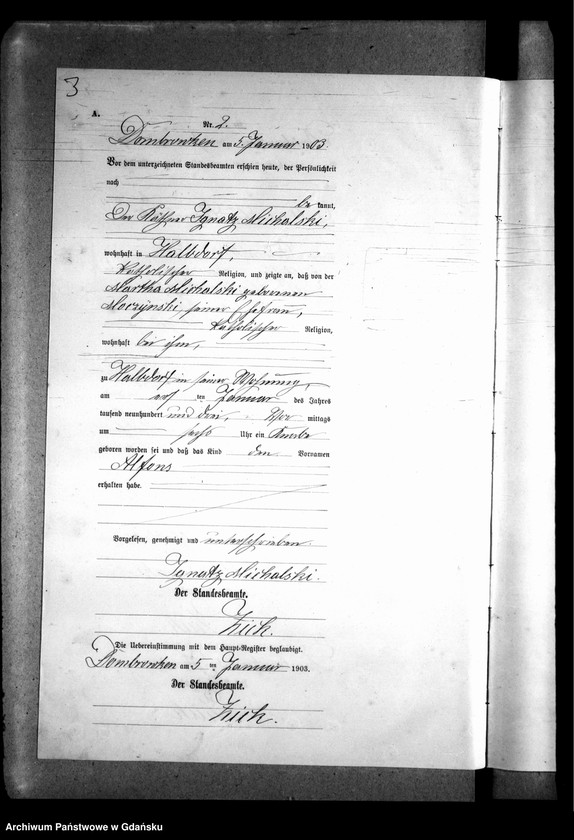 3
A.
Nr. 2.
Dombrowken am 5. Januar 1903.
Vor dem unterzeichneten Standesbeamten erschien heute, der Persönlichkeit
nach
be kannt,
Der Käthner Ignatz Michalski,
wohnhaft in Halbdorf,
katholischer Religion, und zeigte an, daß von der
Martha Michalski geborenen
Moczynski, seiner Ehefrau,
katholischer Religion,
wohnhaft bei ihm,
zu Halbdorf in seiner Wohnung,
am ten Januar des Jahres
tausend neunhundert und drei, Vor mittags
um sechs Uhr ein Knabe
geboren worden sei und daß das Kind den Vornamen
Alfons
erhalten habe.
Vorgelesen, genehmigt und unterschrieben
Ignatz Michalski.
Der Standesbeamte.
Zich.
Die Uebereinstimmung mit dem Haupt-Register beglaubigt.
Dombrowken am 5 ten Januar 1903.
Der Standesbeamte.
Zich.
Archiwum Państwowe w Gdańsku